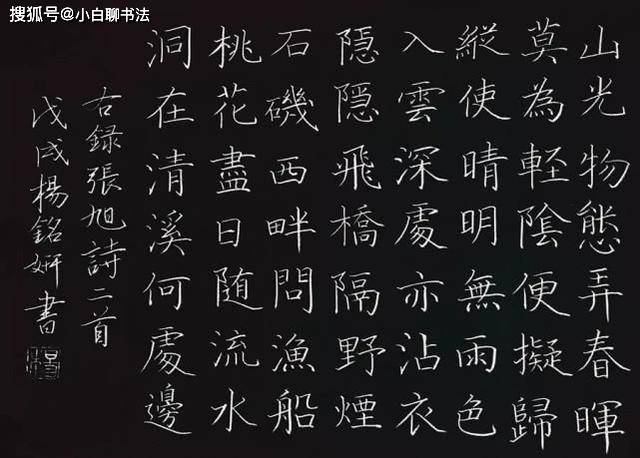 搜狐号@小白聊书法
山光物態弄春暉
莫為輕陰便擬歸
縱使晴明無雨色
入雲深處亦沾衣
隱隱飛橋隔野煙
石磯西畔問漁船
桃花盡日随流水
洞在清溪何處邊
右録張旭詩二首
戊戌楊銘妍書